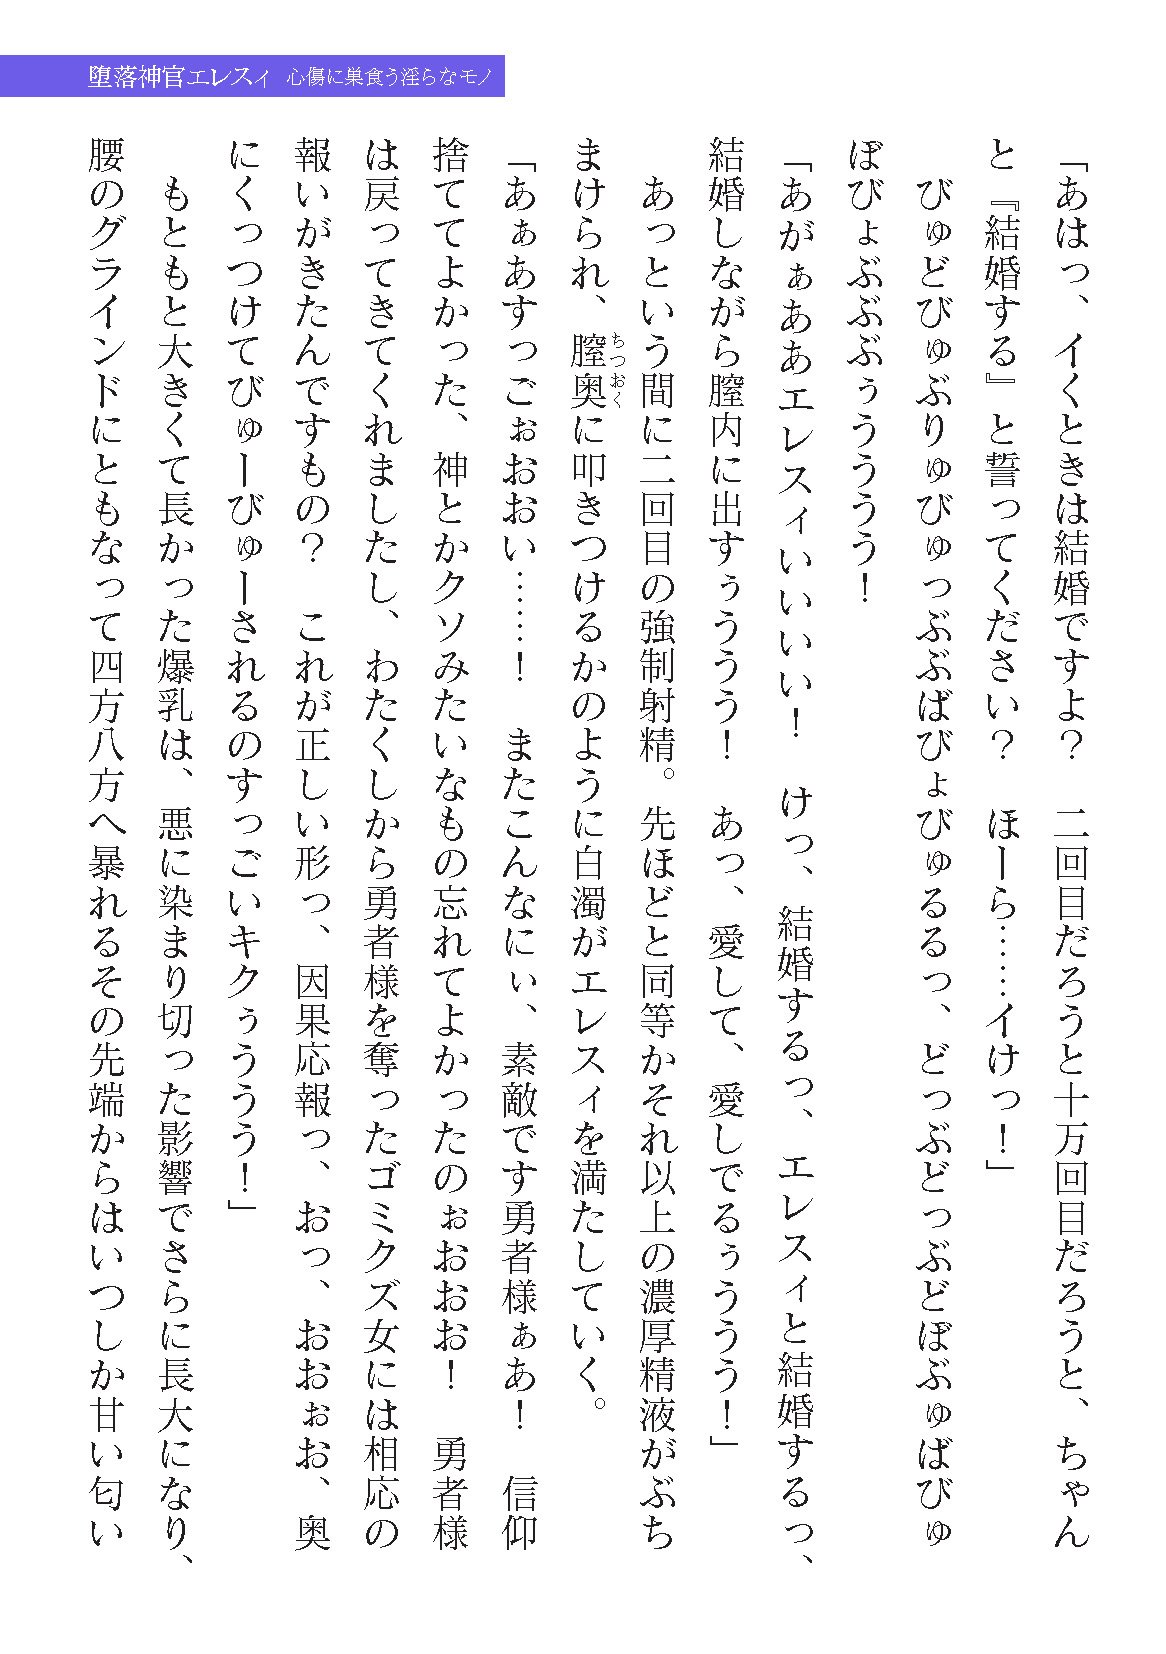 堕落神官エレスィ 心傷に巣食う淫らなモノ
「あはっ、イくときは結婚ですよ？　二回目だろうと十万回目だろうと、ちゃん
と『結婚する』と誓ってください？　ほーら……イけっ！」
　びゅどびゅぶりゅびゅっぶぶばびょびゅるるっ、どっぶどっぶどぼぶゅばびゅ
ぼびょぶぶぶぅうううう！
「あがぁああエレスィいいいい！　けっ、結婚するっ、エレスィと結婚するっ、
結婚しながら膣内に出すぅううう！　あっ、愛して、愛しでるぅううう！」
　あっという間に二回目の強制射精。先ほどと同等かそれ以上の濃厚精液がぶち
まけられ、膣奥に叩きつけるかのように白濁がエレスィを満たしていく。
ちつおく
「あぁあすっごぉおおい……！　またこんなにぃ、素敵です勇者様ぁあ！　信仰
捨ててよかった、神とかクソみたいなもの忘れてよかったのぉおおお！　勇者様
は戻ってきてくれましたし、わたくしから勇者様を奪ったゴミクズ女には相応の
報いがきたんですもの？　これが正しい形っ、因果応報っ、おっ、おおぉお、奥
にくっつけてびゅーびゅーされるのすっごいキクぅううう！」
　もともと大きくて長かった爆乳は、悪に染まり切った影響でさらに長大になり、
腰のグラインドにともなって四方八方へ暴れるその先端からはいつしか甘い匂い